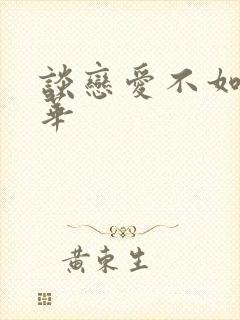 談戀愛不如
華
黃東生